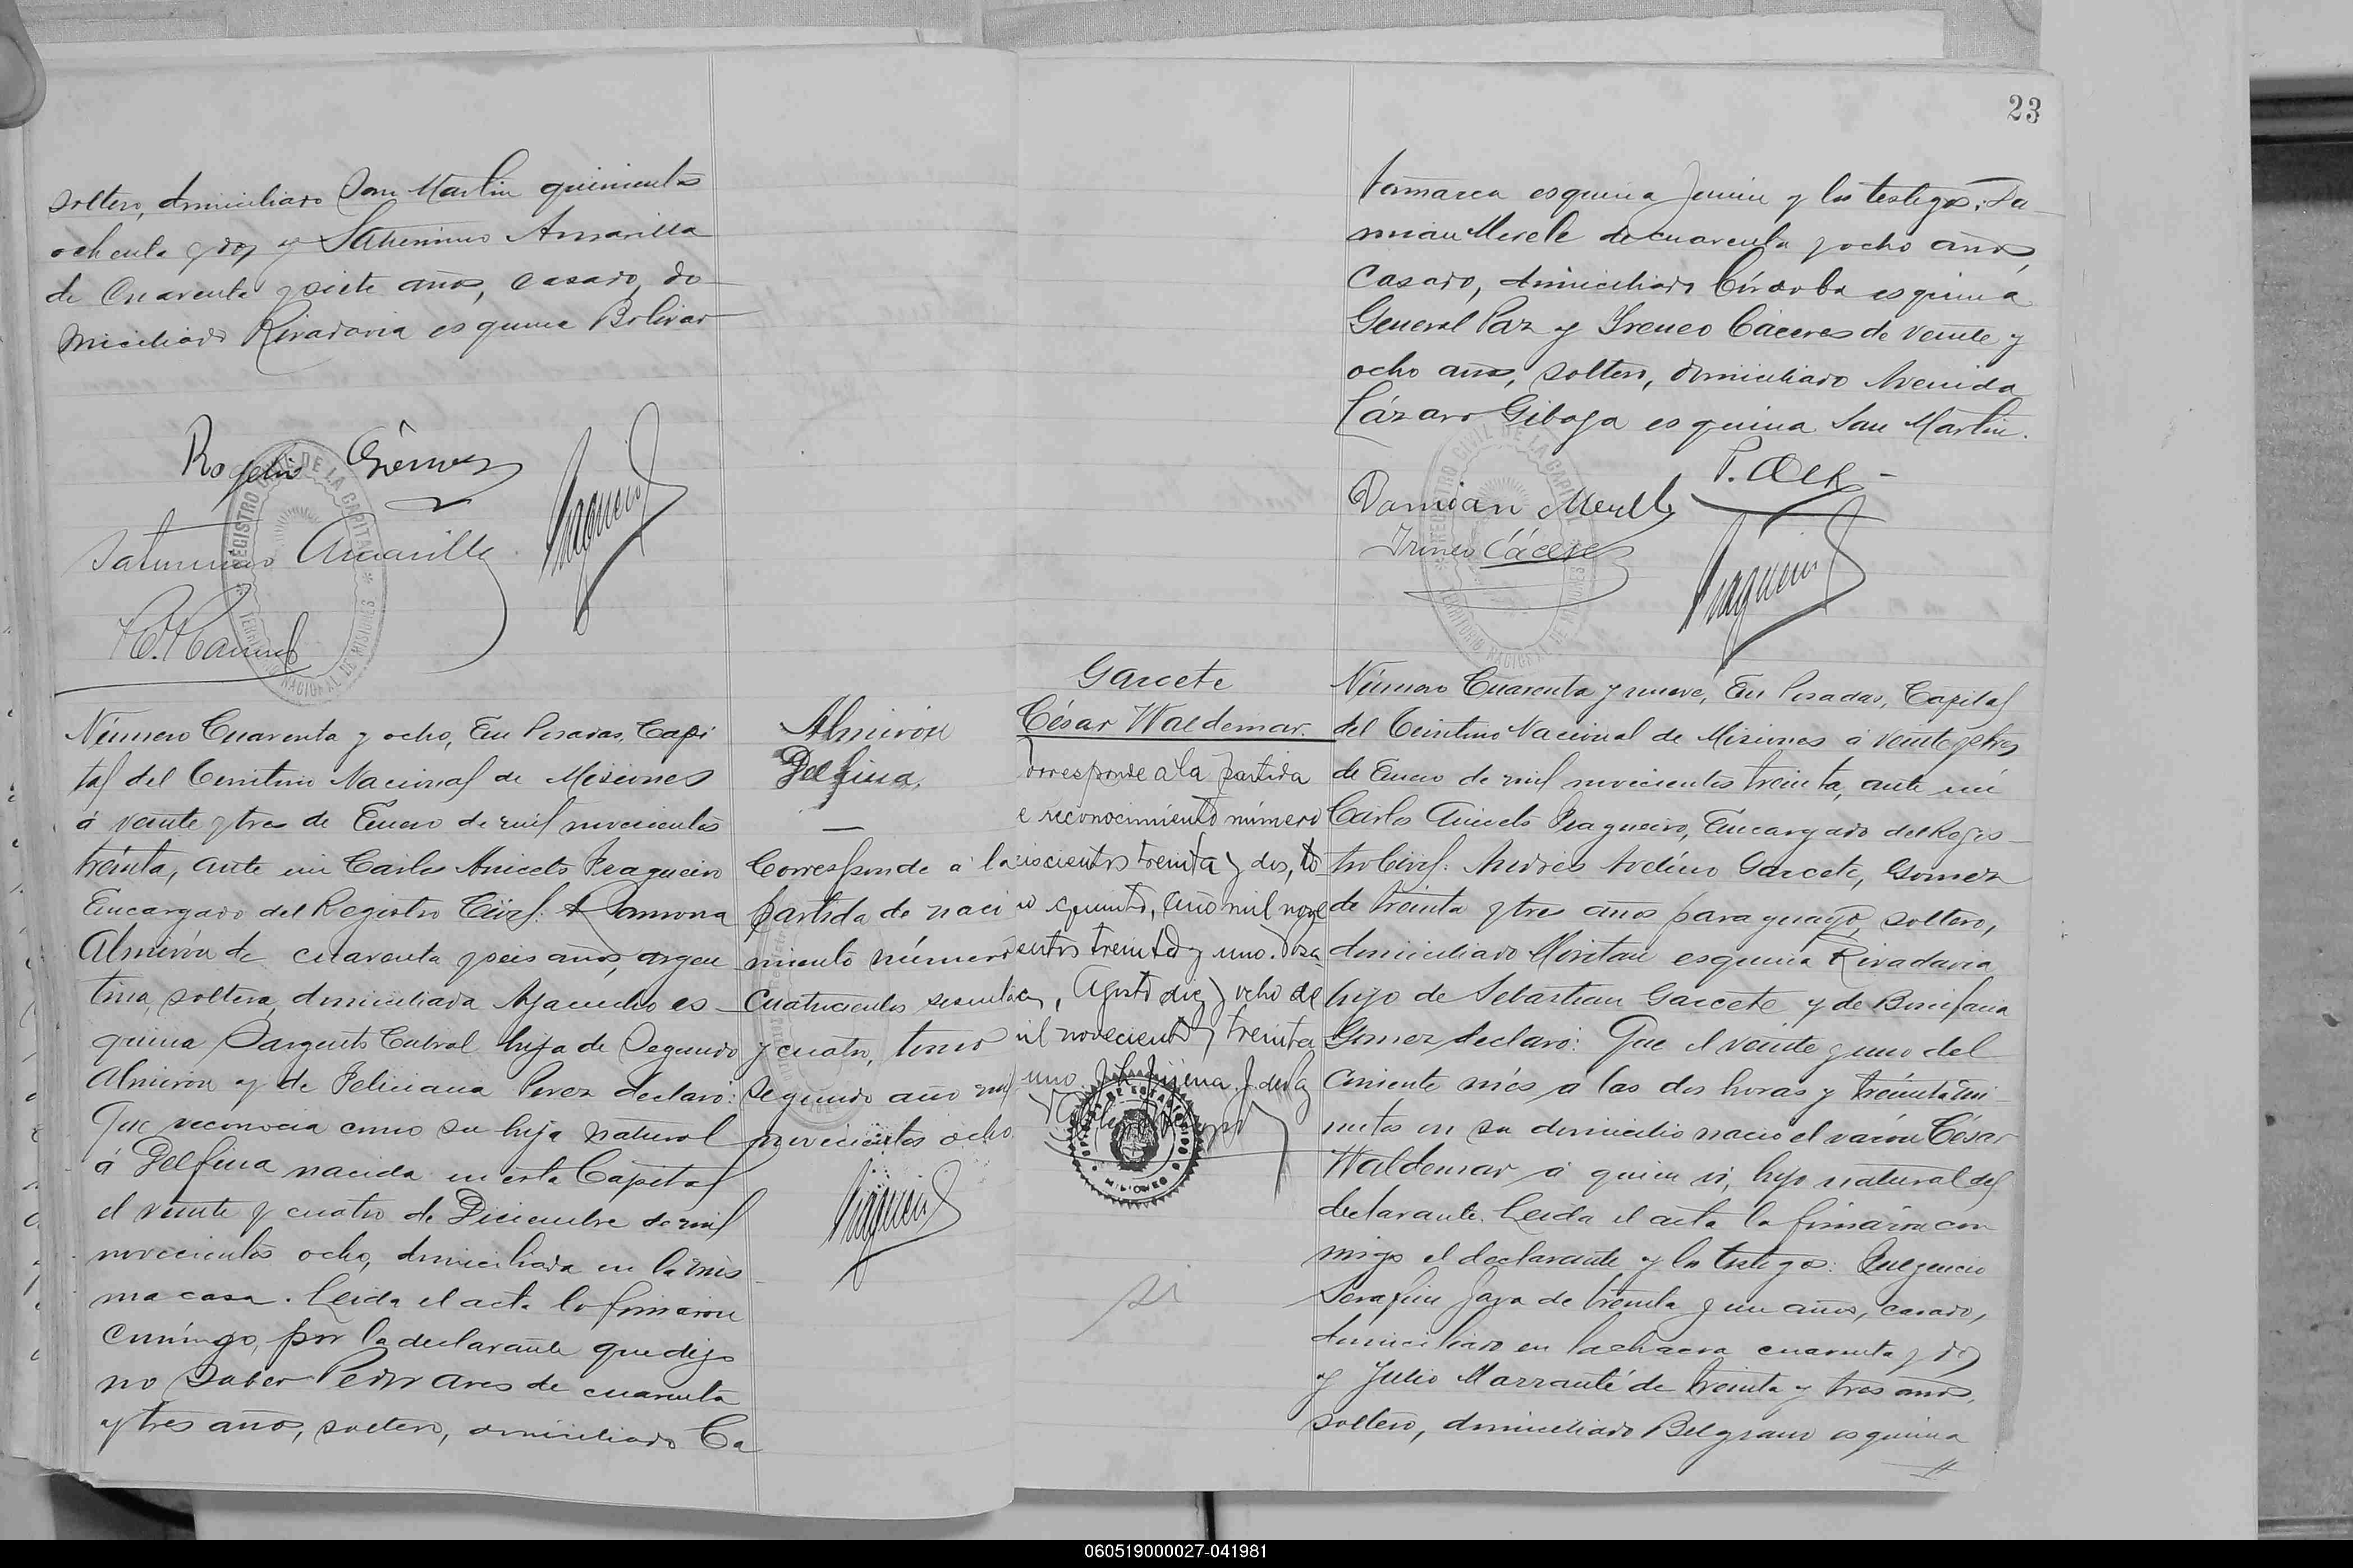 soltero, domiciliado San Martin quinientos
ochenta y dos y Saturnino Amarilla
de Cuarenta y siete años, casado, do
miciliado Rivadavia esquina Bolivar
Rogelio Gómez
Saturnino Amarilla
REGISTRO CIVIL DE LA CAPITAL
TERRITORIO NACIONAL DE MISIONES
Número Cuarenta y ocho, En Posadas, Capi
tal del Territorio Nacional de Misiones
á veinte y tres de Enero de mil novecientos
treinta, ante mi Carlos Aniceto Fragueiro
Encargado del Registro Civil: Ramona
Almirón de cuarenta y seis años, argen
tina, soltera, domiciliada Ayacucho es
quina Sargento Cabral hija de Segundo
Almiron y de Feliciana Perez declaró:
Que reconocia como su hija natural
á Delfina nacida en esta Capital
el veinte y cuatro de Diciembre de mil
novecientos ocho, domiciliada en la mis
ma casa. Leida el acta la firmaron
conmigo, por la declarante que dijo
no saber Pedro Ares de cuarenta
y tres años, soltero, domiciliado Ca
Almirón
Delfina.
Corresponde á la
partida de naci
miento número
Cuatrocientos sesenta
y cuatro, tomo
segundo año mil
novecientos ocho.
23
tamarca esquina Junin y los testigos: Da
mian Merele de cuarenta y ocho años,
Casado, domiciliado Córdoba esquina
General Paz y Ireneo Cáceres de veinte y
ocho años, soltero, domiciliado Avenida
Lázaro Gibaja esquina San Martin.
Damian
Ireneo Cáceres
REGISTRO CIVIL DE LA CAPITAL
TERRITORIO NACIONAL DE MISIONES
Garcete
César Waldemar.
Corresponde a la partida
e reconocimiento número
iscientos treinta y dos, to
o quinto, año mil nove
ientos treinta y uno. Posa
as, Agosto diez y ocho de
il novecientos treinta
uno
MISIONES
si
Número Cuarenta y nueve, En Posadas, Capital
del Territorio Nacional de Misiones á veinte y tres
de Enero de mil novecientos treinta, ante mi
Carlos Aniceto Fragueiro, Encargado del Regis
tro Civil: Andrés Avelino Garcete, Gomez
de treinta y tres años paraguayo, soltero,
domiciliado Moritan esquina Rivadavia
hijo de Sebastian Garcete y de Bonifacia
Gomez declaró: Que el veinte y uno del
corriente mes á las dos horas y treinta mi
nutos en su domicilio nació el varón César
Waldemar á quien vi, hijo natural del
declarante. Leida el acta la firmaron con
migo el declarante y los testigos: Fulgencio
Serafin Jara de treinta y un años, casado,
domiciliado en la chacra cuarenta y dos
y Julio Marzanté de treinta y tres años,
soltero, domiciliado Belgrano esquina
060519000027-041981